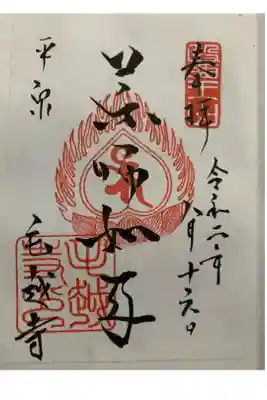 奉拝
令和二年
八月十六日
薬師如来
平泉
毛越寺